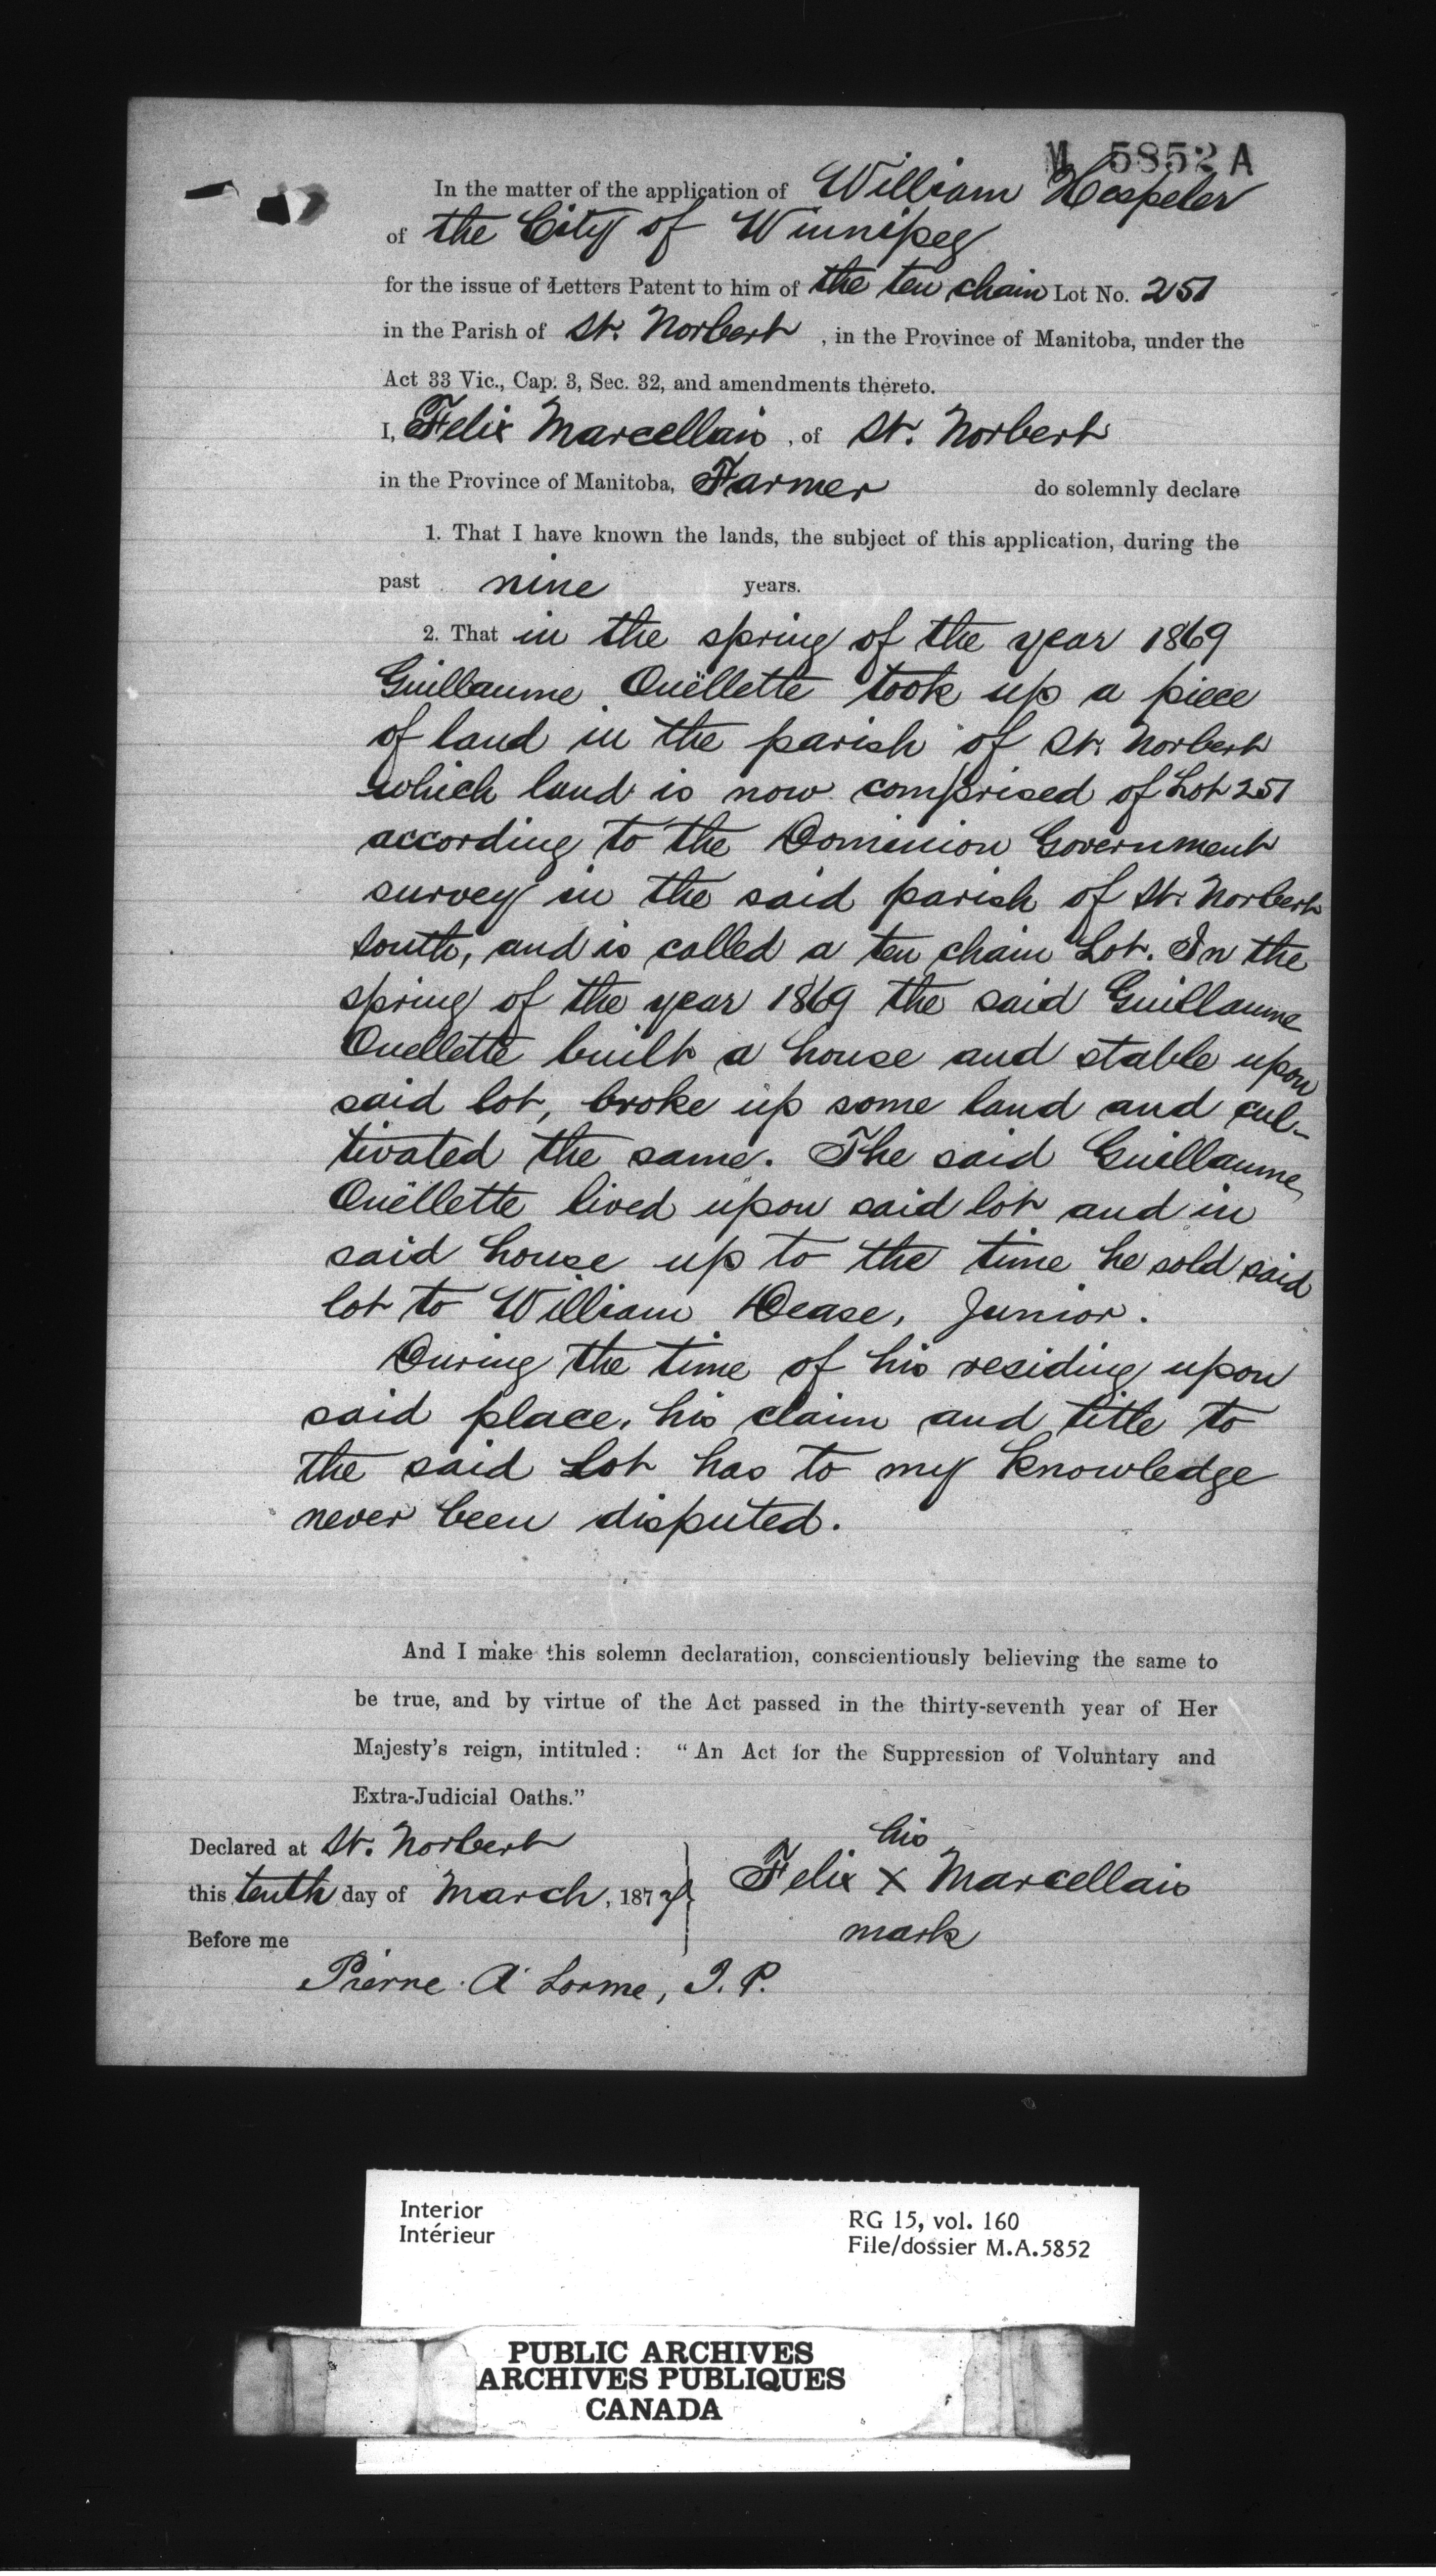 M 5852 A
In the matter of the application of William Hespeler
of the City of Winnipeg
for the issue of Letters Patent to him of the ten chain Lot No. 251
in the Parish of St. Norbert , in the Province of Manitoba, under the
Act 33 Vic., Cap. 3, Sec. 32, and amendments thereto.
I, Felix Marcellais , of St. Norbert
in the Province of Manitoba, Farmer do solemnly declare
1. That I have known the lands, the subject of this application, during the
past nine years.
2. That in the spring of the year 1869
Guillaume Ouëllette took up a piece
of land in the parish of St. Norbert
which land is now comprised of Lot 251
according to the Dominion Government
survey in the said parish of St. Norbert
South, and is called a ten chain Lot. In the
spring of the year 1869 the said Guillaume
Ouellette built a house and stable upon
said lot, broke up some land and cul-
tivated the same. The said Guillaume
Ouëllette lived upon said lot and in
said house up to the time he sold said
lot to William Dease, Junior.
During the time of his residing upon
said place, his claim and title to
the said Lot has to my knowledge
never been disputed.
And I make this solemn declaration, conscientiously believing the same to
be true, and by virtue of the Act passed in the thirty-seventh year of Her
Majesty's reign, intituled : "An Act for the Suppression of Voluntary and
Extra-Judicial Oaths."
Declared at St. Norbert
this tenth day of March, 187
Before me
his
Felix X Marcellais
mark
Pierre A Lorme, J. P.
Interior
Intérieur
RG 15, vol. 160
File/dossier M.A.5852
PUBLIC ARCHIVES
ARCHIVES PUBLIQUES
CANADA